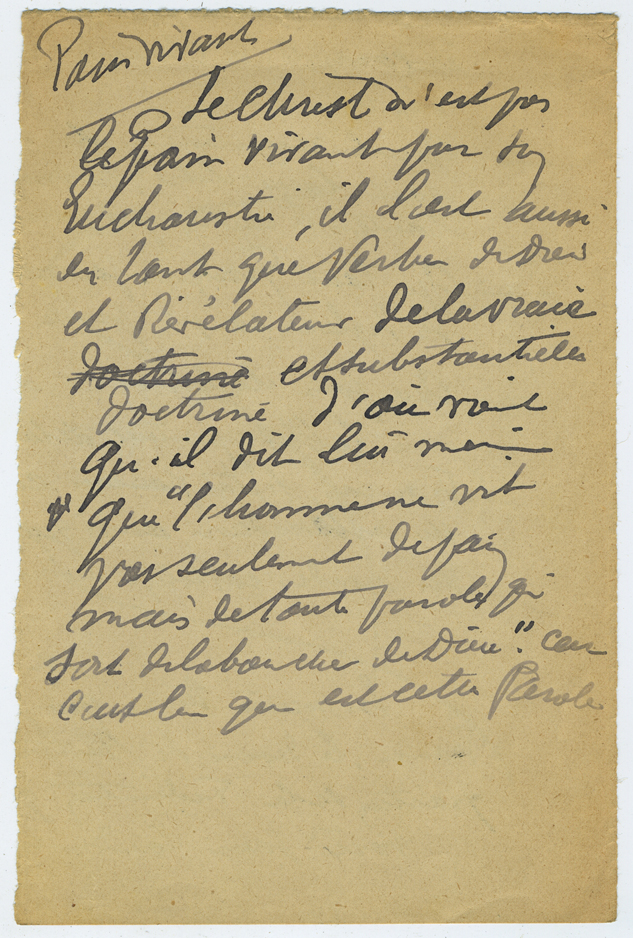 Pain vivant
Le Christ n'est pas
le pain vivant par son
Eucharistie, il l'est aussi
en tant que Verbe de Dieu
et Révélateur de la vraie
doctrine et substantielle
doctrine D'où vient
qu'il dit lui même
que "l'homme ne vit
pas seulement de pain
mais de toute parole qui
sort de la bouche de Dieu". car
c'est lui qui est cette Parole